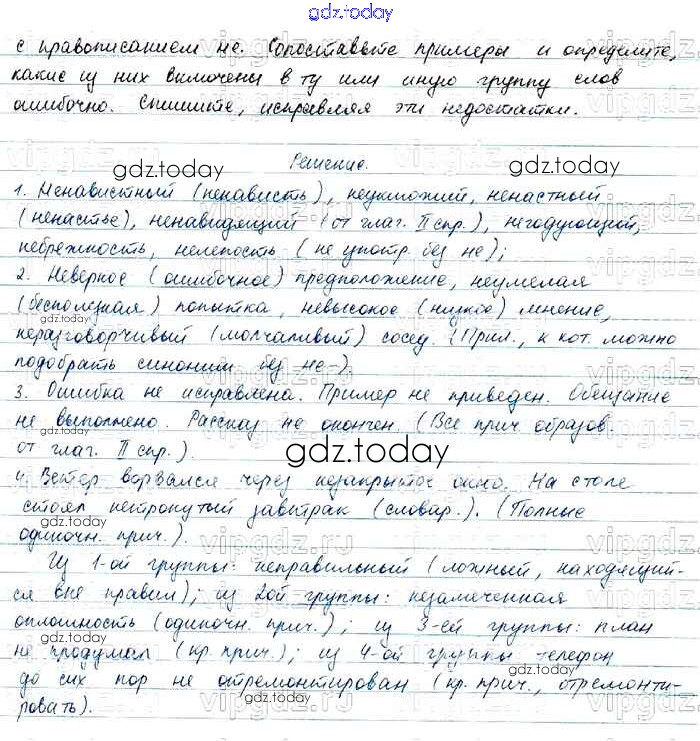 gdz.today
с правописанием не. Сопоставьте примеры и определите,
какие из них включены в ту или иную группу слов
ошибочно. Спишите, исправляя эти недостатки.
gdz.today
Решение.
1. Ненавистный (ненависть), неуклюжий, ненастный
(ненастье), ненавидящий (от глаг. II спр.), негодующий,
небрежность, нелепость (не употр. без не);
2. Неверное (ошибочное) предположение, неумелая
(бесполезная) попытка, невысокое (низкое) мнение,
неразговорчивый (молчаливый) сосед. (Прил., к кот. можно
подобрать синоним без не-).
3. Ошибка не исправлена. Пример не приведен. Обещание
не выполнено. Рассказ не окончен. (Все прич. образов.
от глаг. II спр.).
gdz.today
4. Ветер ворвался через незакрытое окно. На столе
стоял нетронутый завтрак (словар.). (Полные
gdz.today
одиночн. прич.).
Из 1-ой группы: неправильный (ложный, находящий-
ся вне правил); из 2ой группы: незамеченная
оплошность (одиночн. прич.); из 3-ей группы: план
не продуман (кр. прич.); из 4-ой группы телефон
до сих пор не отремонтирован (кр. прич., отремонти-
ровать).
gdz.today
gdz.today
vipgdz.ru